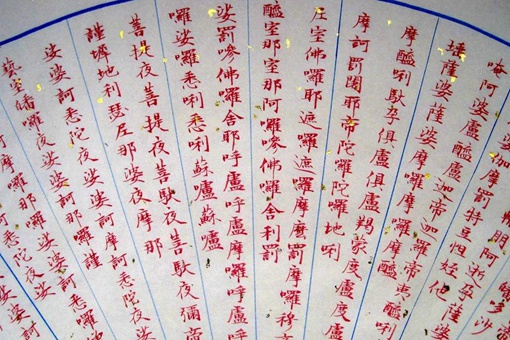 婆伽摩罰特豆怛姪他
唵阿婆盧醯盧迦帝迦羅帝夷醯唎
埵薩婆薩婆摩囉摩囉摩醯
摩醯唎馱孕俱盧俱盧羯蒙度盧度盧
摩訶罰闍耶帝陀囉陀囉地唎
尼室佛囉耶遮囉遮囉摩麼罰摩囉穆帝
醯室那室那阿囉嘇佛囉舍利罰
娑罰嘇佛囉舍耶呼盧呼盧摩囉呼盧呼
囉娑囉悉唎悉唎蘇嚧蘇嚧
菩提夜菩提夜菩馱夜菩馱夜彌帝
謹墀地利瑟尼那婆夜摩那
娑婆訶悉陀夜娑婆訶摩訶悉陀夜娑
藝室皤囉夜娑婆訶那囉謹